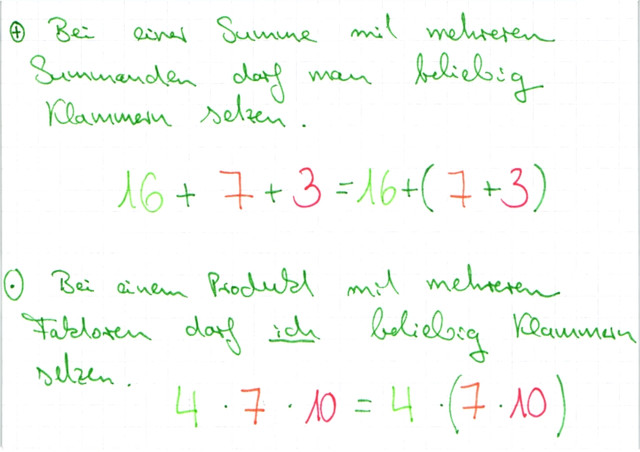 ⊕ Bei einer Summe mit mehreren
Summanden darf man beliebig
Klammern setzen.
16 + 7 + 3 = 16 + (7 + 3)
⊙ Bei einem Produkt mit mehreren
Faktoren darf ich beliebig Klammern
setzen.
4 · 7 · 10 = 4 · (7 · 10)